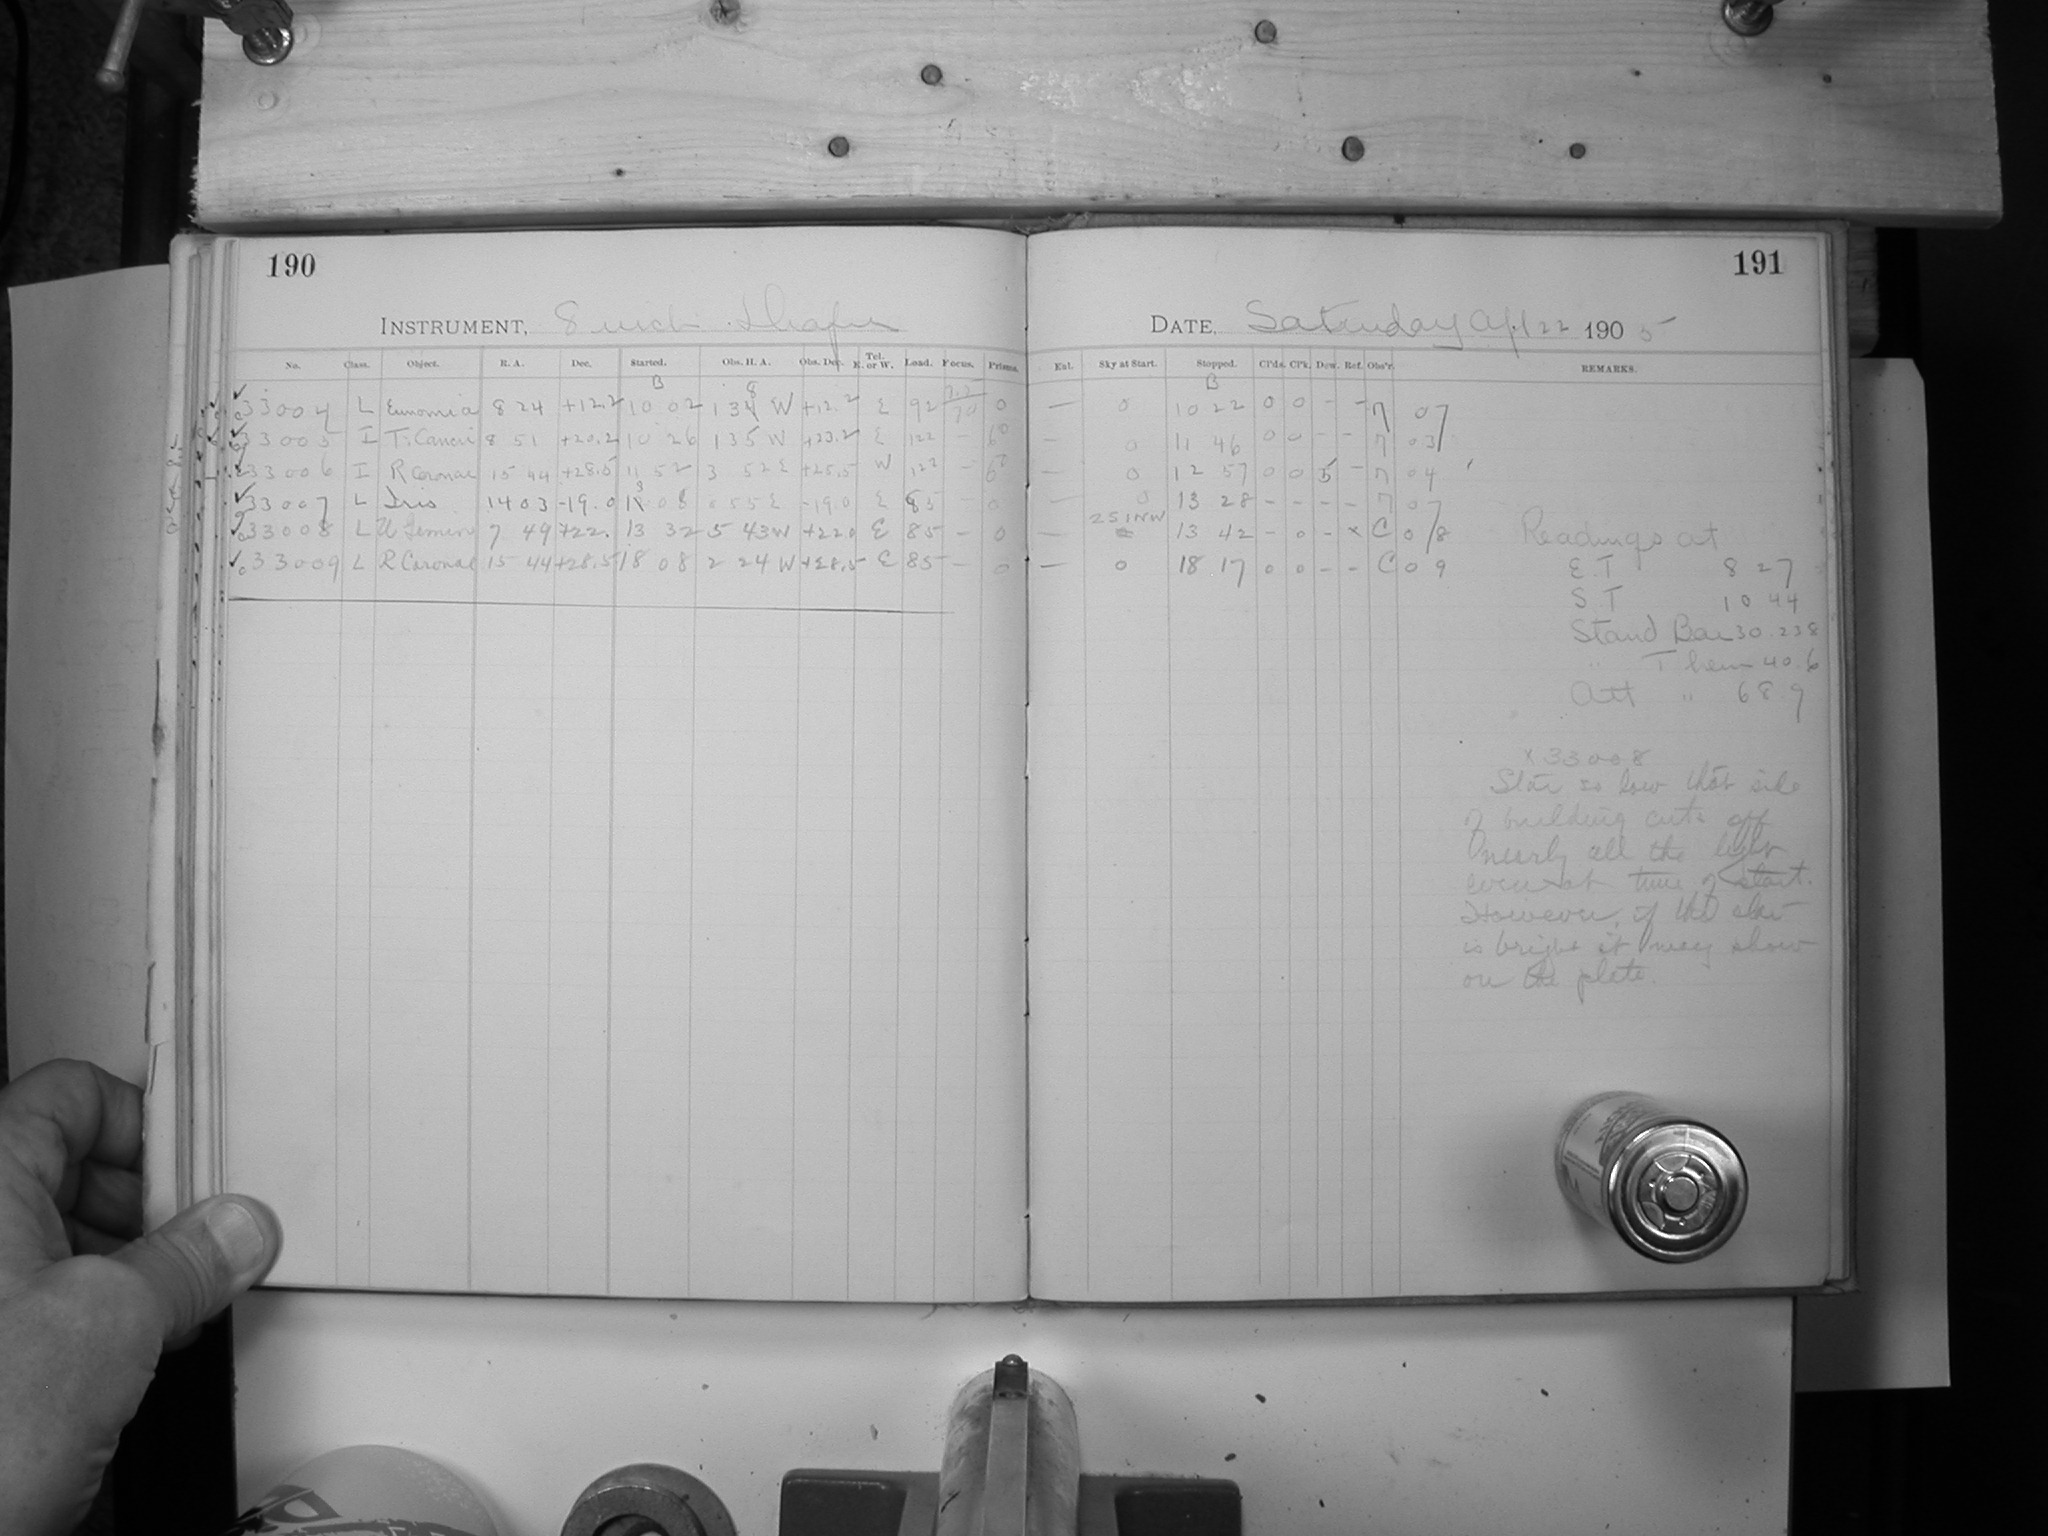 190
191
INSTRUMENT, 8 inch Draper
DATE, Saturday Apl 22 1905
No. Class. Object. R. A. Dec. Started. Obs. H. A. Obs. Dec. Tel. E. or W. Load. Focus. Prisms.
Exl. Sky at Start. Stopped. Cl'ds. Cl'k. Dew. Ref. Obs'r. REMARKS.
B 8
B
33004 L Eunomia 8 24 +12.2 10 02 1 34 W +12.2 E 92 70 0 — 0 10 22 0 0 - - 7 07
33005 I T. Cancri 8 51 +20.2 10 26 1 35 W +23.2 E 122 — 6° — 0 11 46 0 0 - - 7 03
33006 I R Coronae 15 44 +28.5 11 52 3 52 E +28.5 W 122 — 6° — 0 12 57 0 0 5 - 7 04
33007 L Iris 14 03 -19.0 13 08 0 55 E -19.0 E 85 0 — 0 13 28 - - - - 7 07
33008 L U Gemin 7 49 +22. 13 32 5 43 W +22.0 E 85 — 0 — 25 in NW 13 42 - 0 - x C 08
33009 L R Coronae 15 44 +28.5 18 08 2 24 W +28.5 E 85 — 0 — 0 18 17 0 0 - - C 09
Readings at
E. T 8 27
S. T 10 44
Stand Bar 30.238
" Therm 40.6
Att " 68.9
x 33008
Star so low that side
of building cuts off
nearly all the light
even at time of start.
However, if the star
is bright it may show
on the plate.